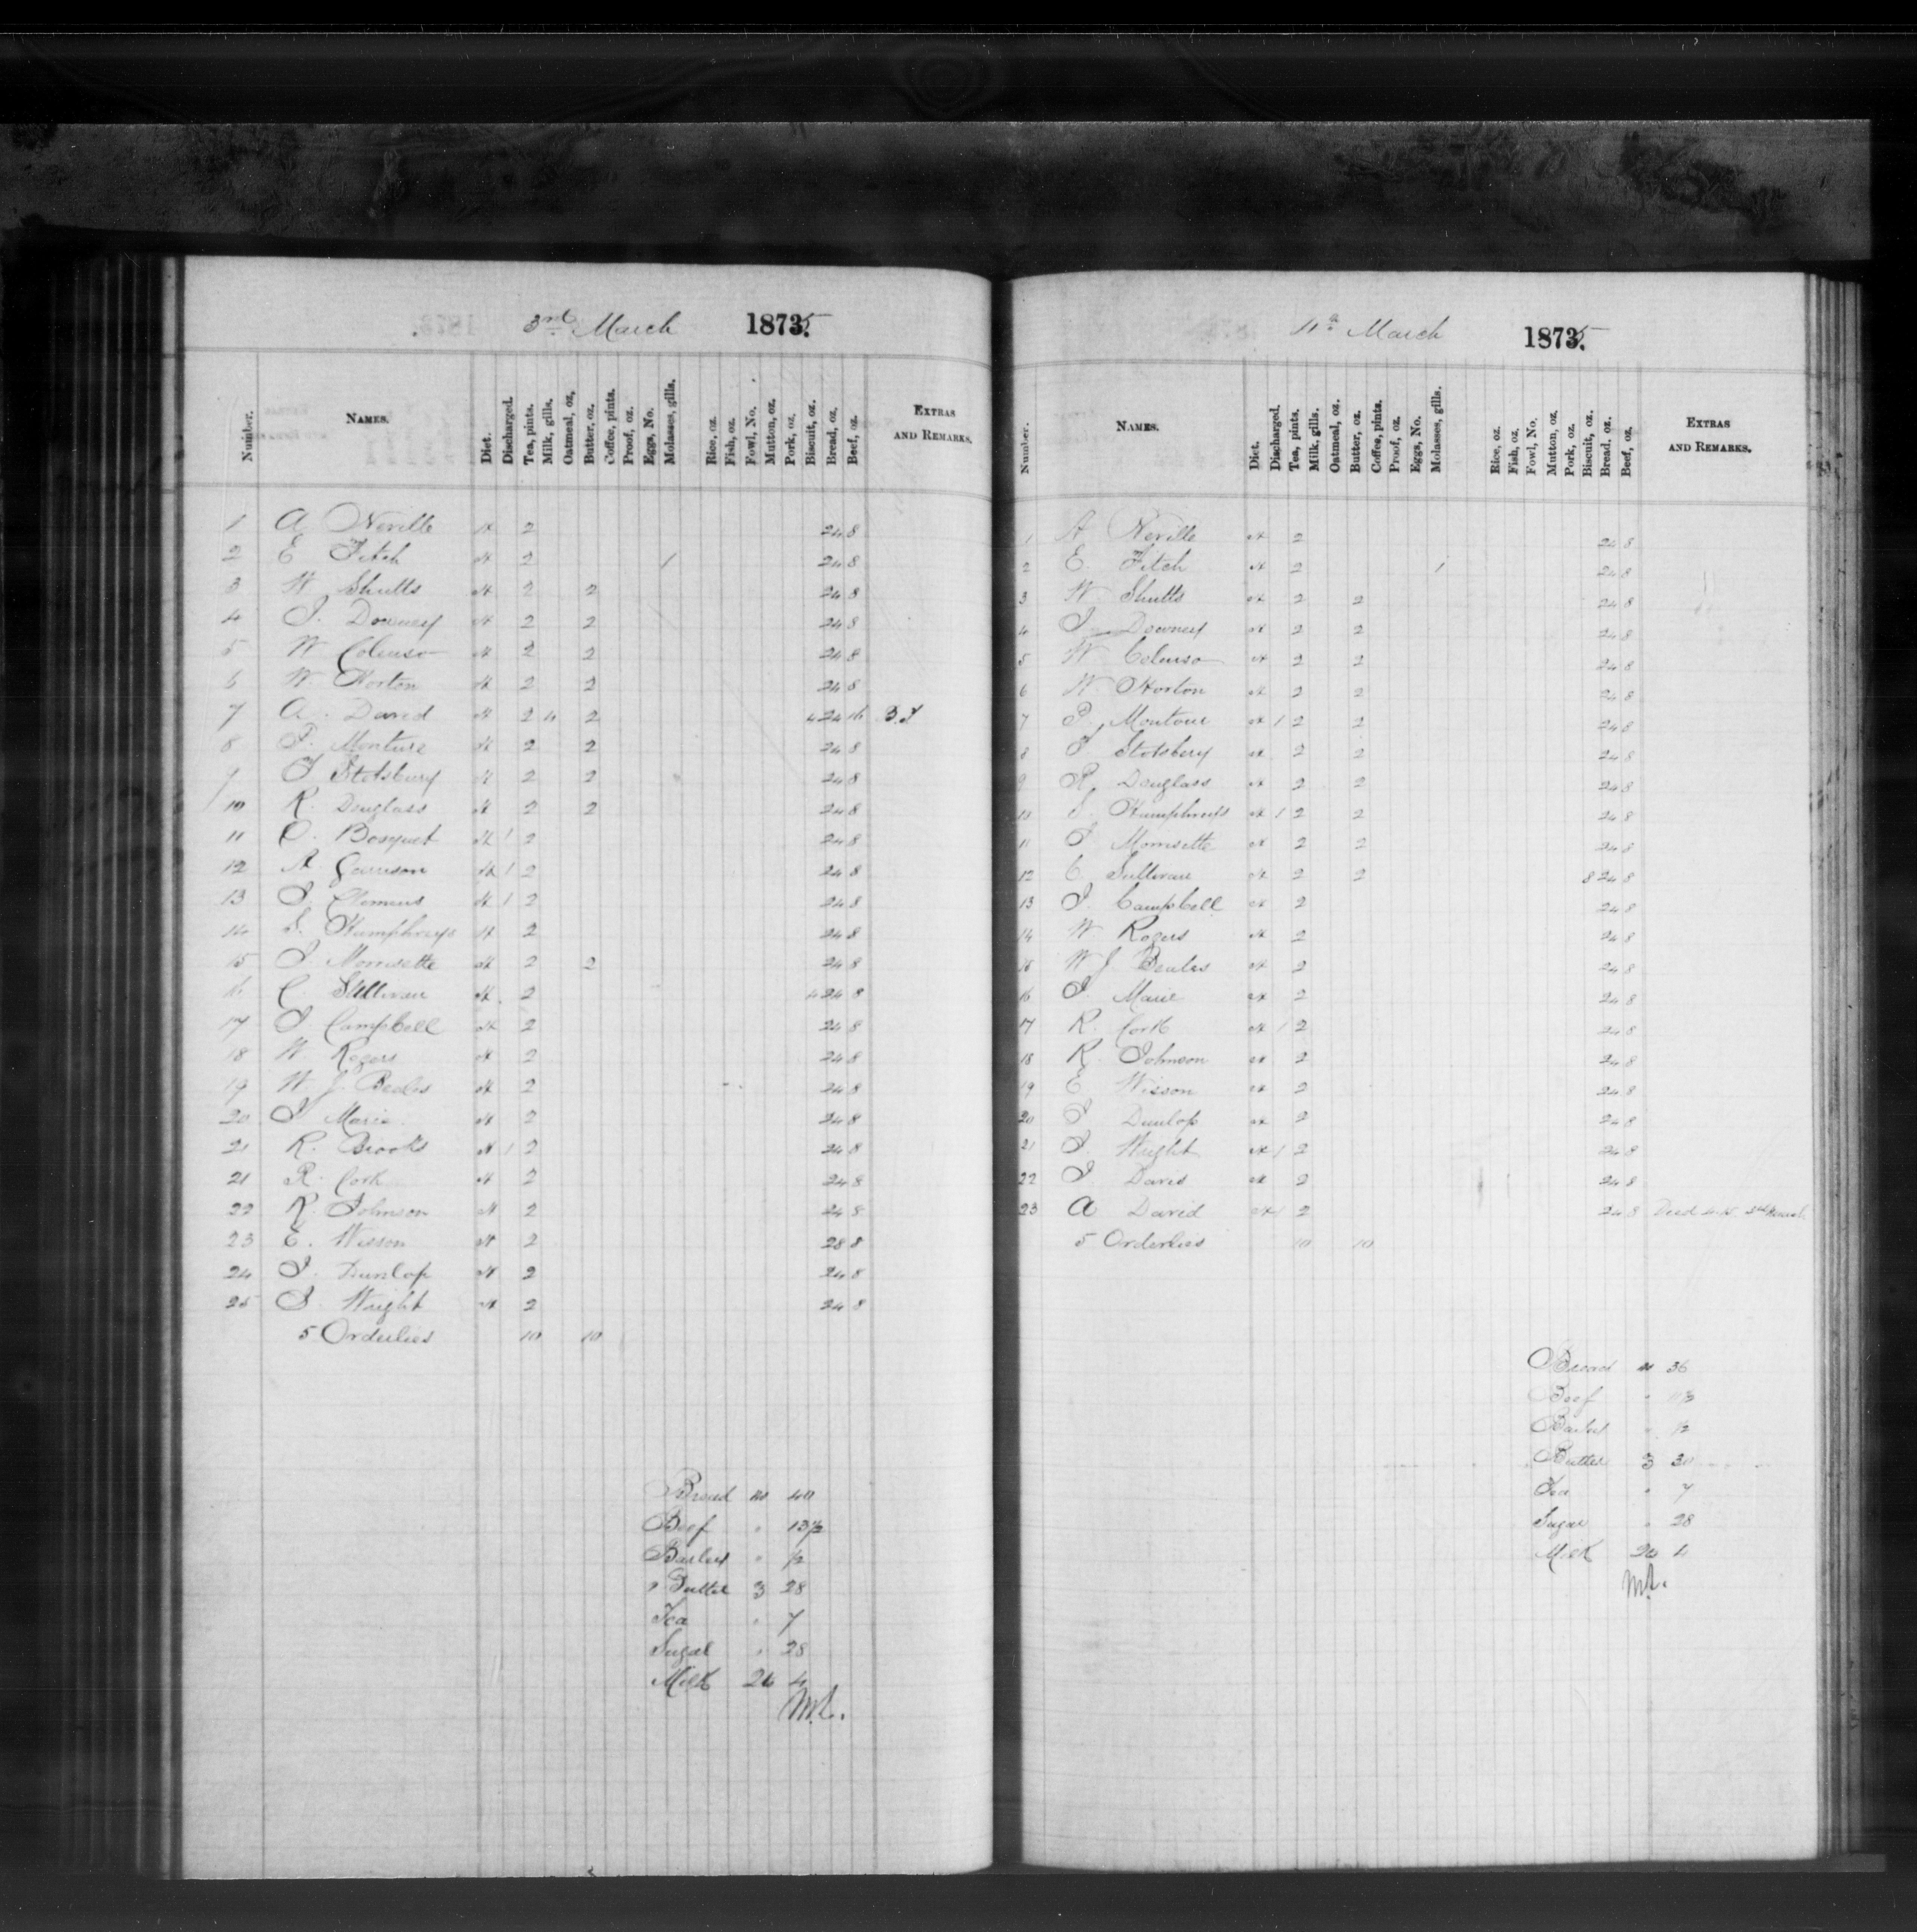 3rd March 1875.
Number. NAMES. Diet. Discharged. Tea, pints. Milk, gills. Oatmeal, oz. Butter, oz. Coffee, pints. Proof, oz. Eggs, No. Molasses, gills. Rice, oz. Fish, oz. Fowl, No. Mutton, oz. Pork, oz. Biscuit, oz. Bread, oz. Beef, oz. EXTRAS AND REMARKS.
1 A Neville 2 24 8
2 E Fitch 2 1 24 8
3 W Shutts 2 2 24 8
4 J. Downey 2 2 24 8
5 W Colenso 2 2 24 8
6 W. Horton 2 2 24 8
7 A. David 2 4 2 4 24 16 B.T
8 P. Monture 2 2 24 8
9 T Stotsbury 2 2 24 8
10 R. Douglass 2 2 24 8
11 O. Bosquet 1 2 24 8
12 A Garrison 1 2 24 8
13 J. Clemens 1 2 24 8
14 S. Humphreys 2 24 8
15 J. Morrisette 2 2 24 8
16 C. Sullivan 2 4 24 8
17 J Campbell 2 24 8
18 W. Rogers 2 24 8
19 W J. Beales 2 24 8
20 J Marie 2 24 8
21 R. Brooks 1 2 24 8
21 R. Cork 2 24 8
22 R. Johnson 2 24 8
23 E. Wisson 2 28 8
24 J. Dunlop 2 24 8
25 J. Wright 2 24 8
5 Orderlies 10 10
Bread 40
Beef " 13½
Barley " ½
Butter 3 28
Tea " 7
Sugar " 28
Milk 26 4
11th March 1875.
Number. NAMES. Diet. Discharged. Tea, pints. Milk, gills. Oatmeal, oz. Butter, oz. Coffee, pints. Proof, oz. Eggs, No. Molasses, gills. Rice, oz. Fish, oz. Fowl, No. Mutton, oz Pork, oz. Biscuit, oz. Bread, oz. Beef, oz. EXTRAS AND REMARKS.
1 A Neville 2 24 8
2 E. Fitch 2 1 24 8
3 W Shutts 2 2 24 8
4 J Downey 2 2 24 8
5 W Colenso 2 2 24 8
6 W. Horton 2 2 24 8
7 P. Montour 1 2 2 24 8
8 T Stotsbery 2 2 24 8
9 R Douglass 2 2 24 8
10 S. Humphreys 1 2 2 24 8
11 J Morrisette 2 2 24 8
12 C. Sullivan 2 2 8 24 8
13 J. Campbell 2 24 8
14 W Rogers 2 24 8
15 W J Beales 2 24 8
16 J. Marie 2 24 8
17 R. Cork 1 2 24 8
18 R. Johnson 2 24 8
19 E Wisson 2 24 8
20 J Dunlop 2 24 8
21 J. Wright 1 2 24 8
22 J. David 2 24 8
23 A David 2 24 8 Died March
5 Orderlies 10 10
Bread 36
Beef " 11½
Barley " ½
Butter 3 30
Tea " 7
Sugar " 28
Milk 26 4